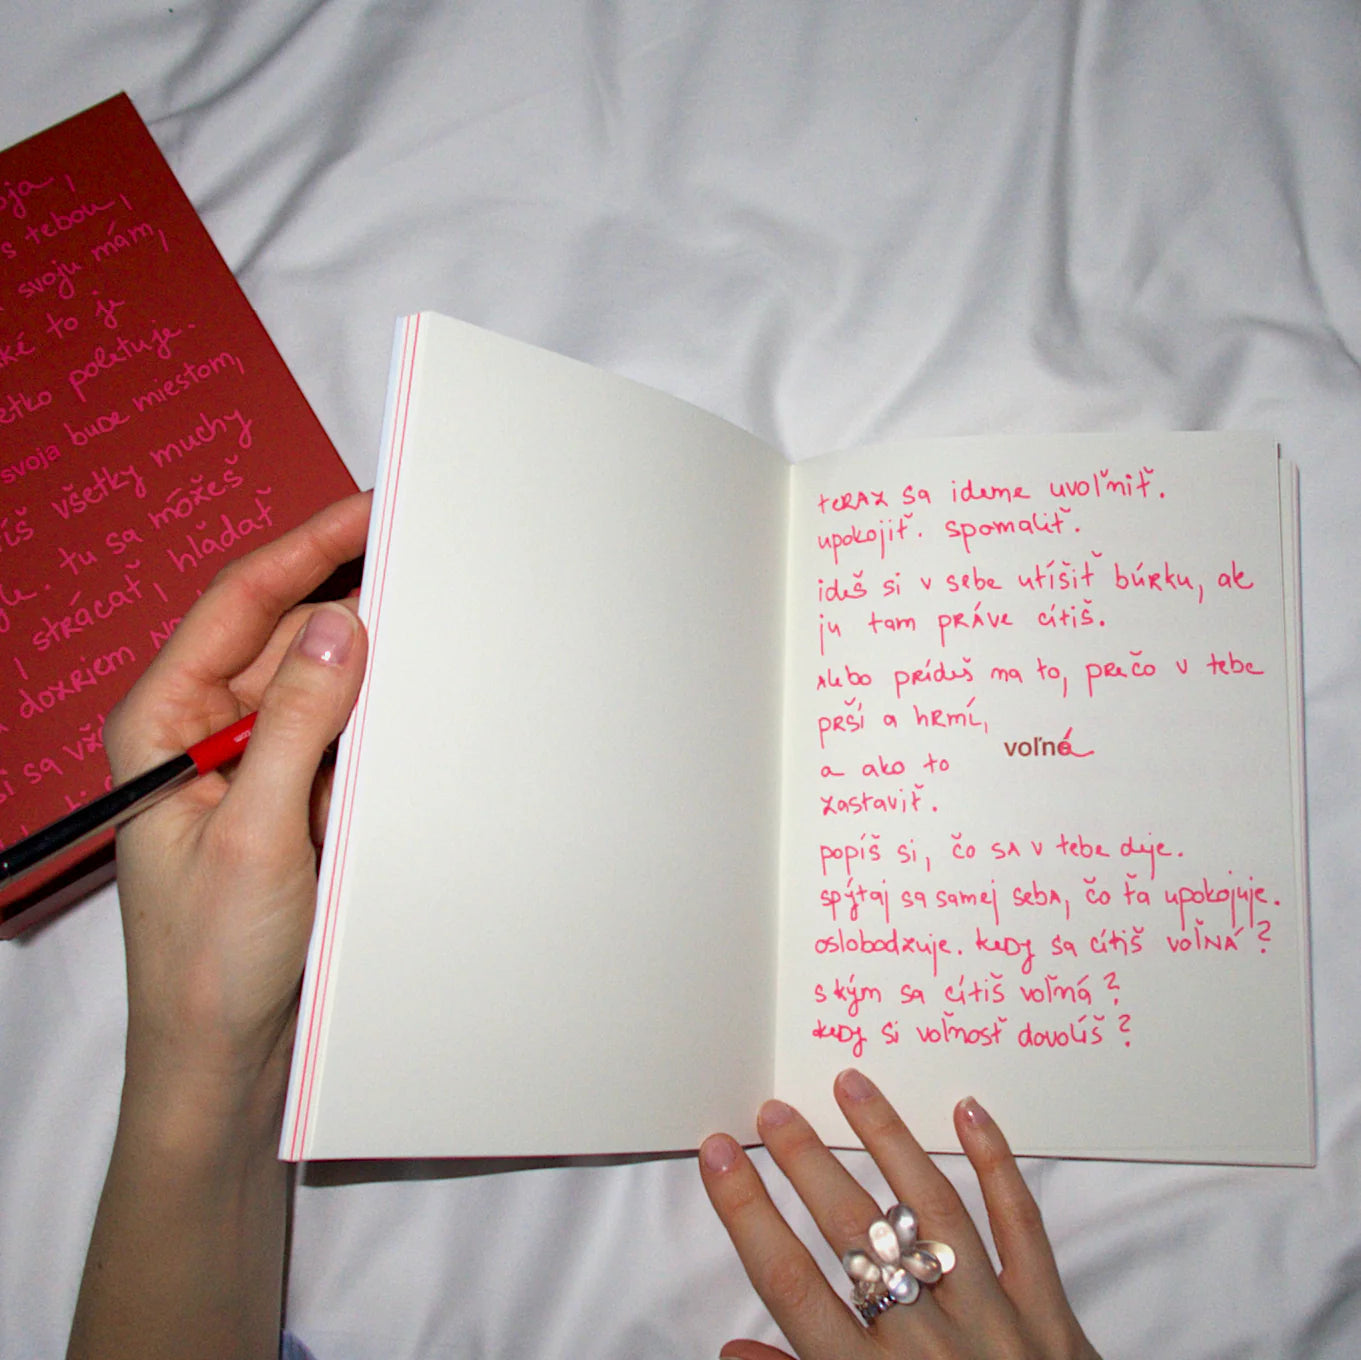 s tebou,
svoju mám,
to je
poletuje.
svoja bude miestom,
všetky muchy
tu sa môžeš
strácať i hľadať
teraz sa ideme uvoľniť.
upokojiť. spomaliť.
ideš si v sebe utíšiť búrku, ak
ju tam práve cítiš.
alebo prídeš na to, prečo v tebe
prší a hrmí,
voľné
a ako to
zastaviť.
popíš si, čo sa v tebe deje.
spýtaj sa samej seba, čo ťa upokojuje.
oslobodzuje. kedy sa cítiš voľná?
s kým sa cítiš voľná?
kedy si voľnosť dovolíš?